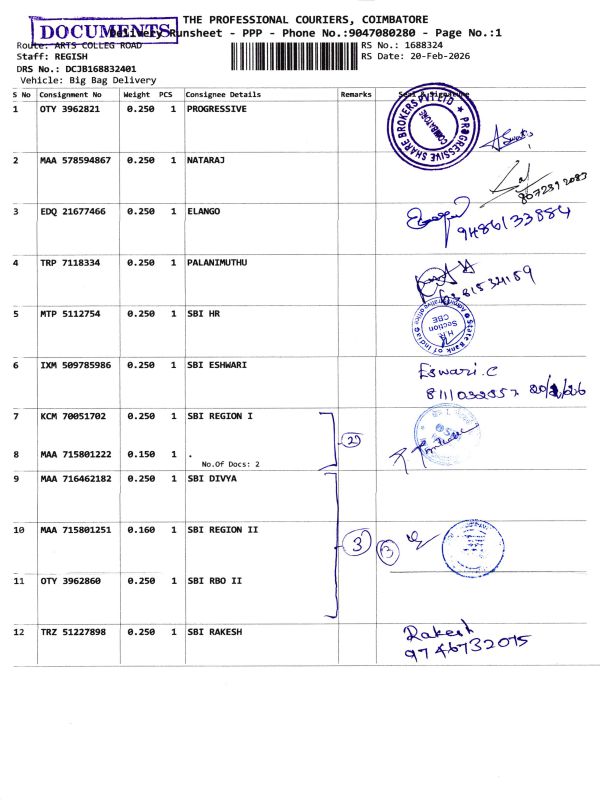 THE PROFESSIONAL COURIERS, COIMBATORE
DOCUMENTS
Delivery Runsheet - PPP - Phone No.:9047080280 - Page No.:1
Route: ARTS COLLEG ROAD
RS No.: 1688324
Staff: REGISH
RS Date: 20-Feb-2026
DRS No.: DCJB168832401
Vehicle: Big Bag Delivery
S No Consignment No Weight PCS Consignee Details Remarks Seal & Signature
1 OTY 3962821 0.250 1 PROGRESSIVE
PROGRESSIVE SHARE BROKERS PVT LTD
COIMBATORE
2 MAA 578594867 0.250 1 NATARAJ
8072392083
3 EDQ 21677466 0.250 1 ELANGO
9486133884
4 TRP 7118334 0.250 1 PALANIMUTHU
5 MTP 5112754 0.250 1 SBI HR
State Bank of India
Administrative Office
H.R.
Section
CBE
6 IXM 509785986 0.250 1 SBI ESHWARI
Eswari.C
20/2/26
7 KCM 70051702 0.250 1 SBI REGION I
2
8 MAA 715801222 0.150 1 .
No.Of Docs: 2
9 MAA 716462182 0.250 1 SBI DIVYA
10 MAA 715801251 0.160 1 SBI REGION II
3 3
11 OTY 3962860 0.250 1 SBI RBO II
12 TRZ 51227898 0.250 1 SBI RAKESH
Rakesh
9746732075